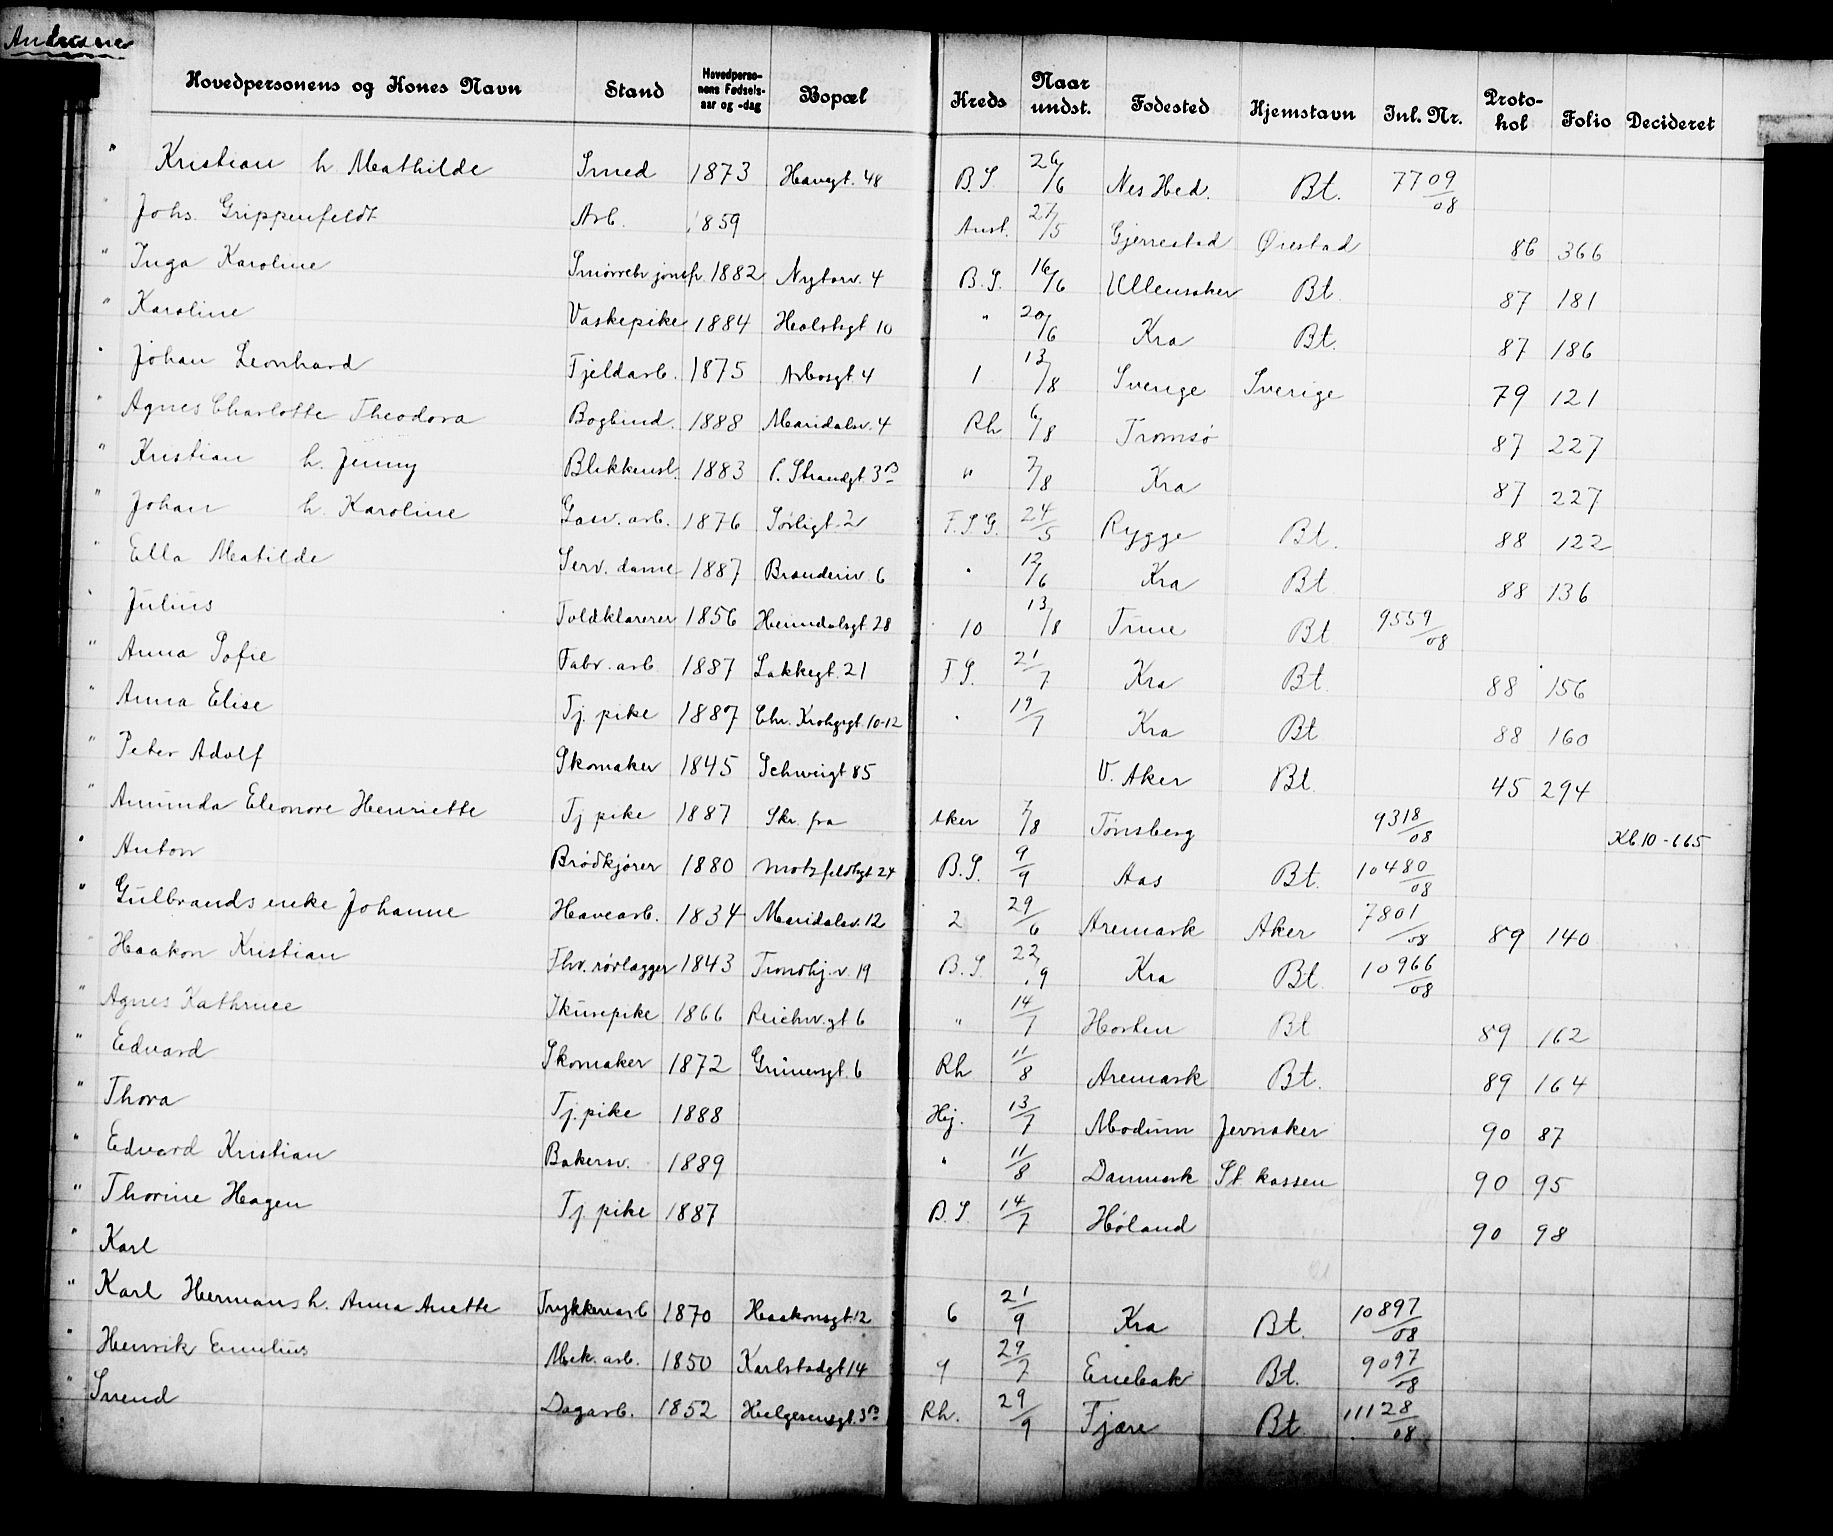 Andresen
Hovedpersonens og Kones Navn Stand Hovedpersonens Fødselsaar og -dag Bopæl Kreds Naar undst. Fødested Hjemstavn Inl. Nr. Protokol Folio Decideret
" Kristian h Mathilde Smed 1873 Havegt. 48 B.S. 26/6 Nes Hed. Bt. 7709/08
" Johs. Grippenfeldt Arb. 1859 Anst. 27/5 Gjerrestad Øiestad 86 366
" Inga Karoline Smørrebr.jomfr. 1882 Nytorv. 4 B.S. 16/6 Ullensaker Bt. 87 181
" Karoline Vaskepike 1884 Holstsgt 10 " 20/6 Kra Bt. 87 186
" Johan Leonhard Fjeldarb. 1875 Arbosgt 4 1 13/8 Sverige Sverige 79 121
" Agnes Charlotte Theodora Bogbind. 1888 Maridalsv. 4 Rh 6/8 Tromsø 87 227
" Kristian h. Jenny Blikkensl. 1883 P. Strandgt 3B " 7/8 Kra 87 227
" Johan h. Karoline Garv. arb. 1876 Sørligt. 2 F.S.G. 24/5 Rygge Bt. 88 122
" Ella Matilde Serv. dame 1887 Brinderiv 6 " 12/6 Kra Bt. 88 136
" Julius Toldklarerer 1856 Heimdalsgt 28 10 13/8 Tune Bt 9559/08
" Anna Sofie Fabr. arb 1887 Lakkegt. 21 F.S. 21/7 Kra Bt. 88 156
" Anna Elise Tj. pike 1887 Chr. Krohgsgt. 10-12 " 19/7 Kra Bt 88 160
" Peter Adolf Skomaker 1845 Schweigt 85 V. Aker Bt. 45 294
" Amunda Eleonore Henriette Tj pike 1887 Skr. fra Aker 7/8 Tønsberg 9318/08 Kl 10-665
" Anton Brødkjører 1880 Motzfeldtsgt 24 B.S. 9/9 Aas Bt. 10480/08
" Gulbrands enke Johanne Havearb. 1834 Maridalsv. 12 2 29/6 Aremark Aker 7801/08 89 140
Haakon Kristian Fhv. rørlægger 1843 Trondhj. v. 19 B.S. 22/9 Kra Bt 10966/08
" Agnes Kathrine Skurepike 1866 Reichw. gt 6 " 14/7 Horten Bt 89 162
" Edvard Skomaker 1872 Grünersgt. 6 Rh 11/8 Aremark Bt. 89 164
" Thora Tj. pike 1888 Hj. 13/7 Modum Jevnaker 90 87
" Edvard Kristian Bakersv. 1889 " 11/8 Danmark St kassen 90 95
" Thorine Hagen Tj. pike 1887 B.S. 14/7 Høland 90 98
" Karl
" Karl Hermans h. Anna Anette Trykkeriarb 1870 Haakonsgt. 12 6 21/9 Kra Bt. 10897/08
" Henrik Emilius Mek. arb. 1850 Karlstadgt 14 9 29/7 Enebak Bt. 9097/08
" Svend Dagarb. 1852 Helgesensgt. 3B Rh. 29/9 Fjære Bt. 11128/08